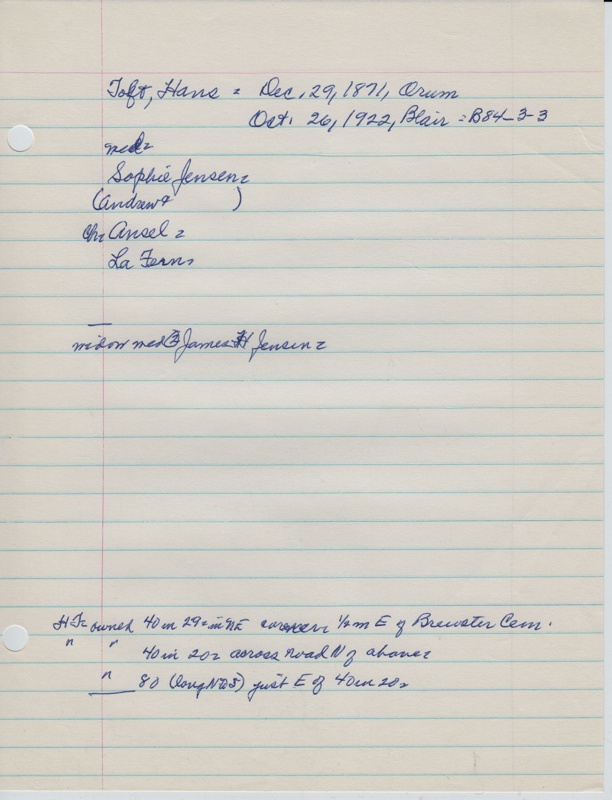 Toft, Hans = Dec. 29, 1871, Orum
Oct. 26, 1922, Blair = B84-3-3
md=
Sophie Jensen=
(Andrew & )
Ch= Ansel =
La Fern=
widow med James H Jensen=
H T= owned 40 in 29= in NE corner 1/2 m E of Brewster Cem.
" " 40 in 20= across road N of above=
" 80 (long N&S) just E of 40 in 20=